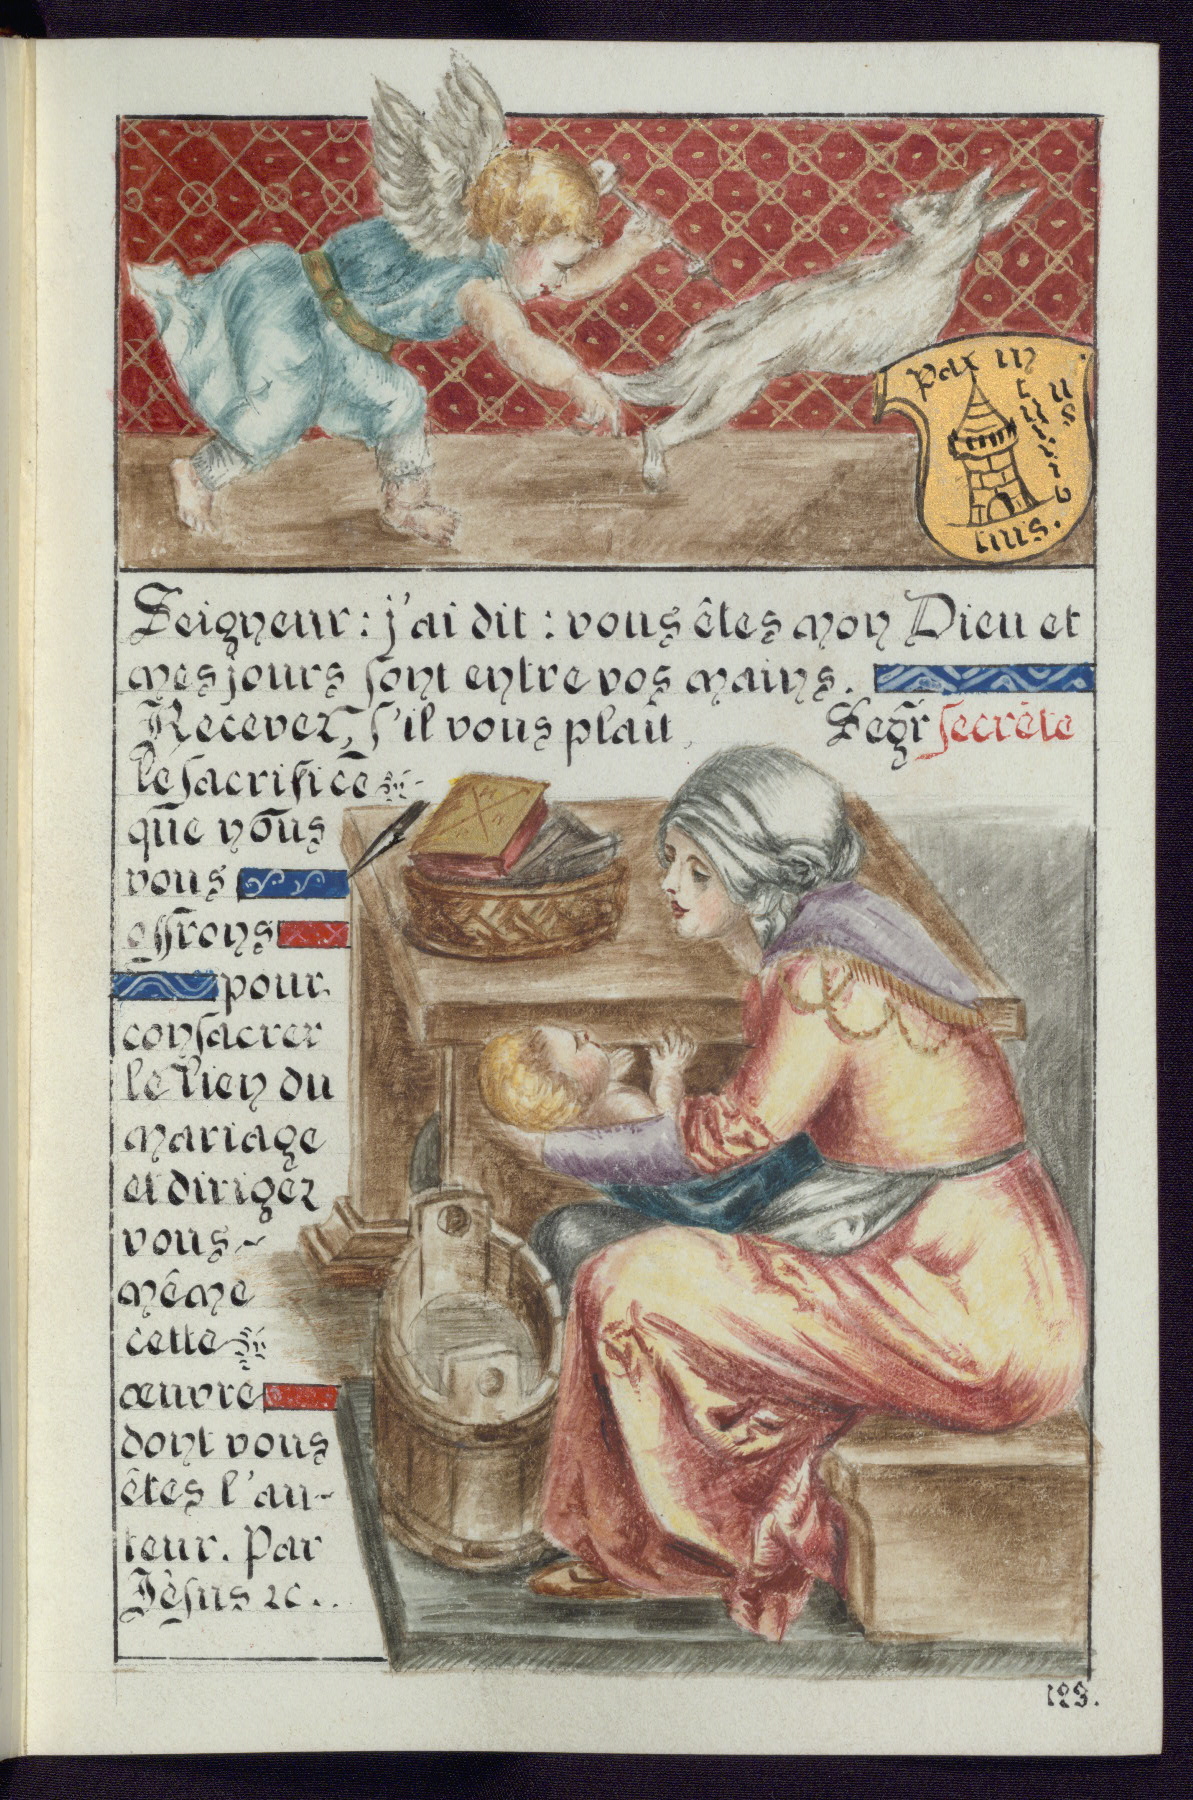 Pax in
Seigneur : j'ai dit : vous êtes mon Dieu et
mes jours sont entre vos mains.
Recevez, s'il vous plait, Segr secrète
le sacrifice
que nous
vous
offrons
pour
consacrer
le lien du
mariage
et dirigez
vous-
même
cette
œuvre
dont vous
êtes l'au-
teur. Par
Jèsus &c..
123.